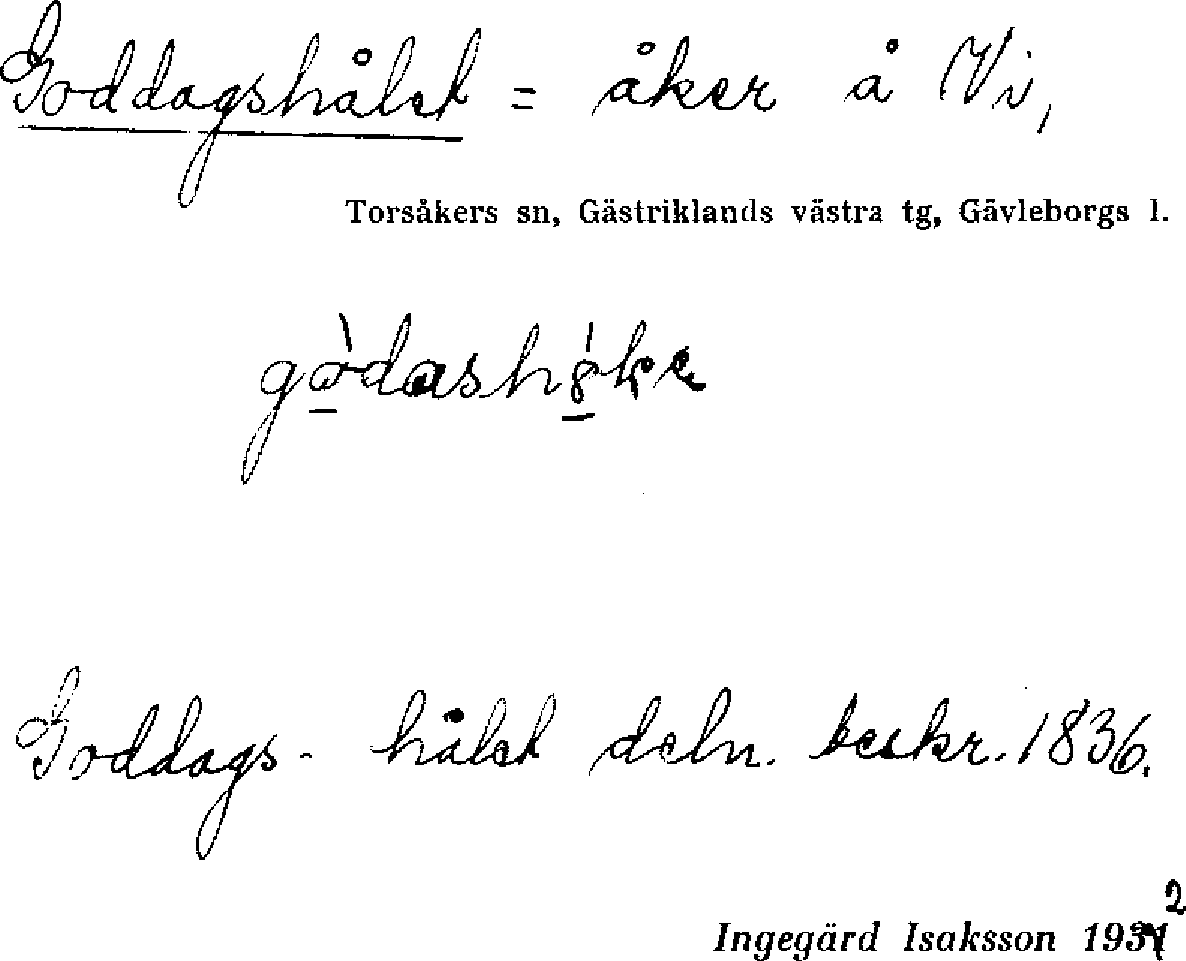 Goddagshålet = åker å Vi,
Torsåkers sn, Gästriklands västra tg, Gävleborgs l.
Goddags- hålet deln. beskr. 1836.
Ingegärd Isaksson 1932